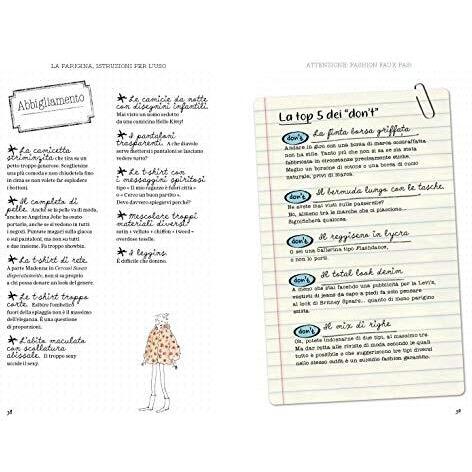 LA PARIGINA, ISTRUZIONI PER L'USO
Abbigliamento
La camicetta
striminzita che tira su un
petto troppo generoso. Sceglietene
una più comoda e non chiudetela fino
in cima se non volete far esplodere
i bottoni.
Il completo di
pelle. Non perché la pelle va di moda,
anche se Angelina Jolie ha osato
portarlo, anche se si evolvono in tutti
i negozi. Puntate magari sulla giacca
o sui pantaloni, ma non su tutti
e due insieme. Fa troppo sherebbe.
La t-shirt di rete.
A parte Madonna in Cercasi Susan
disperatamente, non si sa proprio
a chi possa donare un look del genere.
La t-shirt troppo
corta. Esibire l'ombelico
fuori della spiaggia non è il massimo
dell'eleganza. È una questione
di proporzioni.
L'abito maculato
con scollatura
abissale. Il troppo sexy
uccide il sexy.
Le camicie da notte
con disegnini infantili.
Mai visto un uomo sedotto
da una camicina Hello Kitty!
I pantaloni
trasparenti. A che diavolo
serve mettersi i pantaloni se lasciano
vedere tutto?
Le t-shirt con
i messaggini spiritosi
tipo « Il mio ragazzo è fuori città »
o « Cerco un fidanzato ».
Devo davvero spiegarvi perché?
Mescolare troppi
materiali diversi
satin + velluto + chiffon + tweed =
overdose tessile.
I leggins.
È difficile che donino.
38
ATTENZIONE: FASHION FAUX PAS!
La top 5 dei "don't"
don't La finta borsa griffata
Andare in giro con una borsa di marca contraffatta
non ha stile. Tanto più che non si sa se sia stata
fabbricata in circostanze precisamente etiche.
Meglio un borsone di cotone o una borsa di cuoio
naturale, priva di marca.
don't Il bermuda lungo con le tasche.
Ne avete mai visti sulle passerelle?
No, almeno tra le marche che ci piacciono...
Significherà qualcosa.
don't Il reggiseno in lycra
O sei una ballerina tipo Flashdance,
e non lo porti.
don't Il total look denim
A meno che stai facendo una pubblicità per la Levi's,
vestirsi di jeans da capo a piedi fa solo pensare
al look di Britney Spears... quanto di meno parigino
esista.
don't Il mix di righe
Ok, potete indossarne di due tipi, al massimo tre
Ma dar retta alle riviste di moda secondo le quali
tutto è possibile e che suggeriscono tre tipi diversi
nello stesso outfit è un suicidio fashion garantito.
39